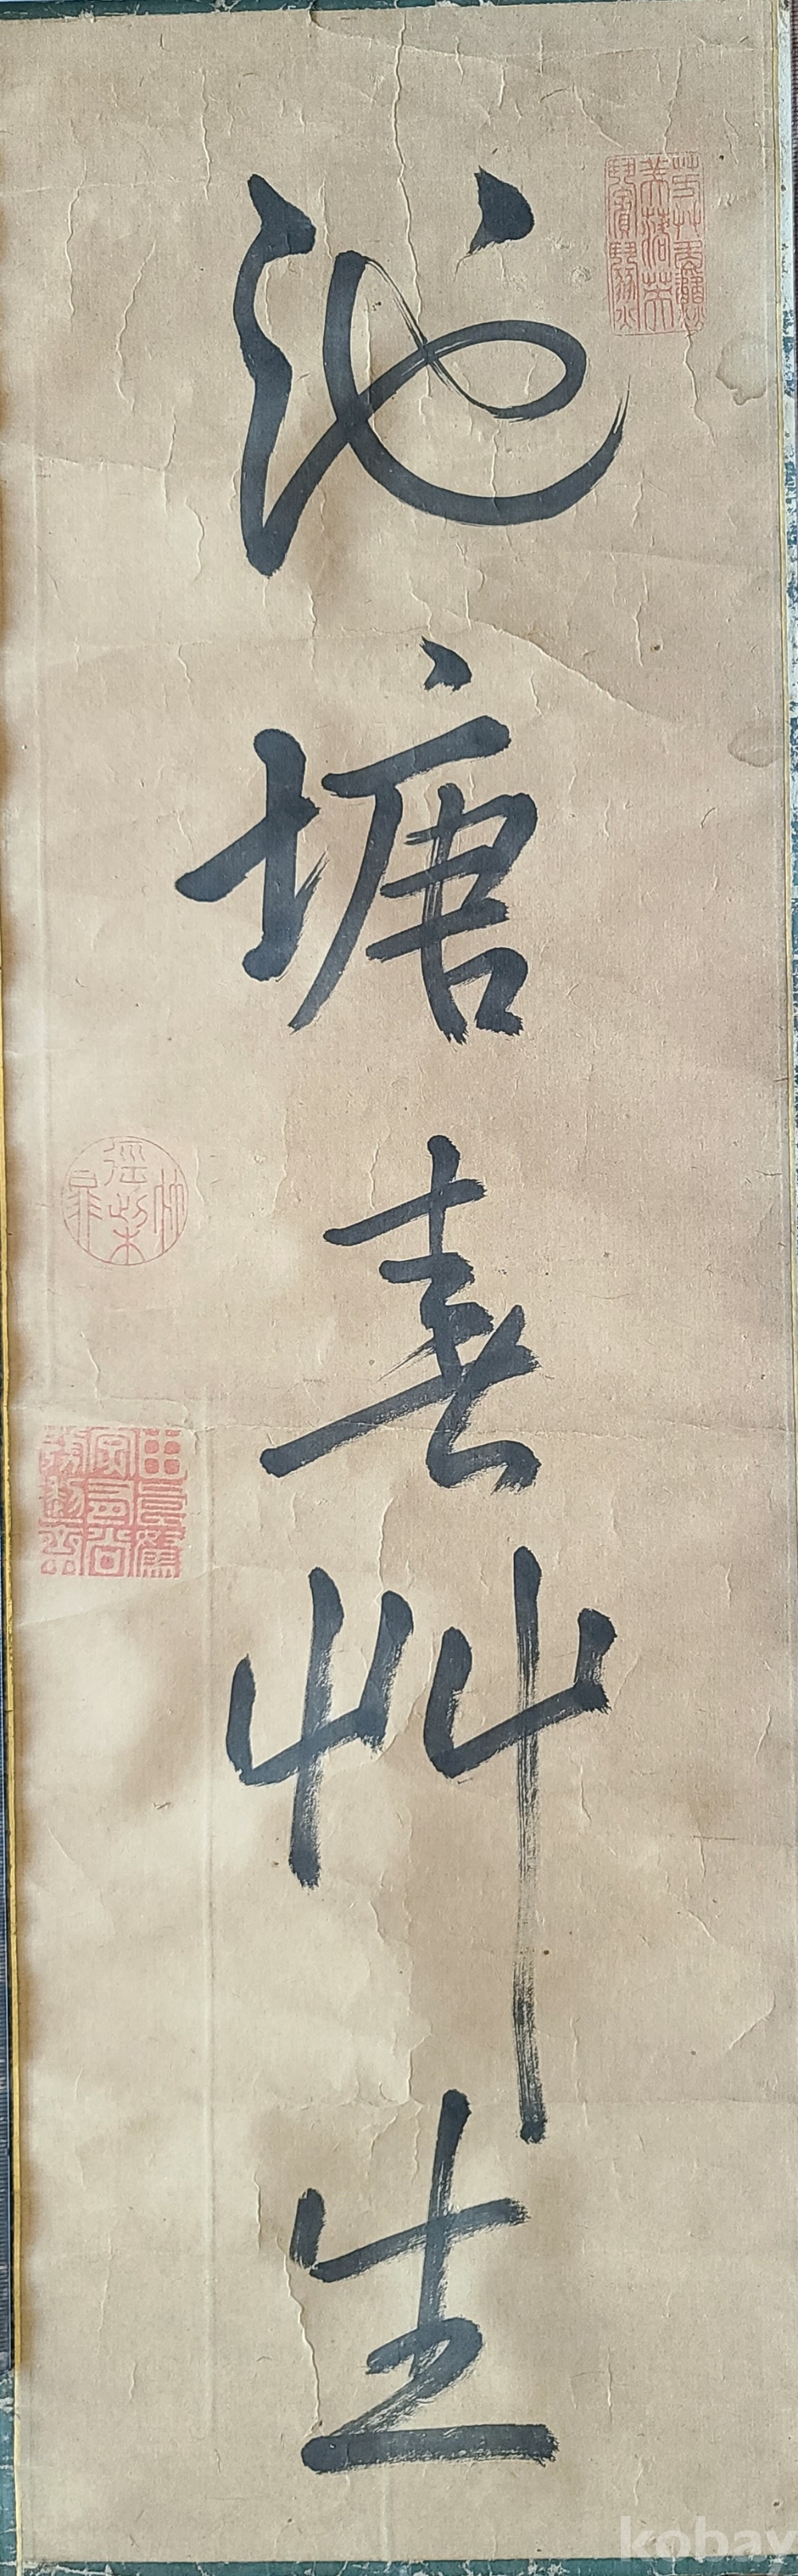 池塘春艸生
kobay